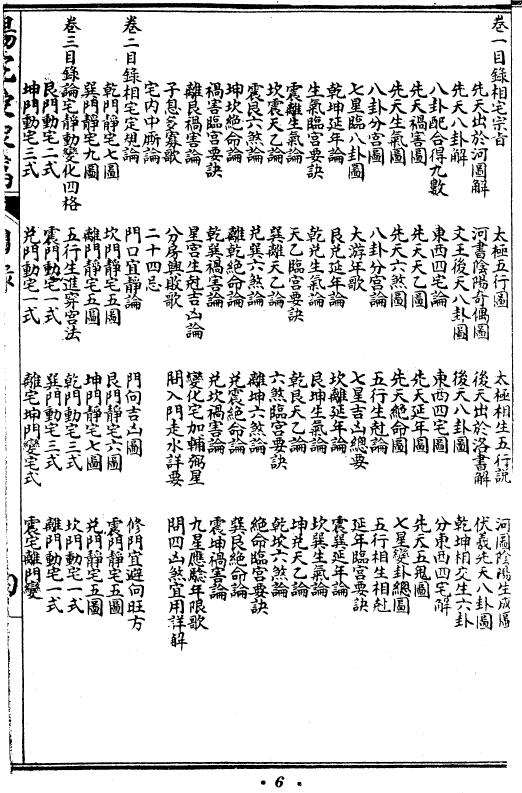 卷一目錄相宅宗旨 太極五行圖 太極相生五行説 河圖陰陽生成圖
先天出於河圖解 河書陰陽奇偶圖 後天出於洛書解 伏羲先天八卦圖
先天八卦解 文王後天八卦圖 後天八卦圖 乾坤相交生六卦
八卦配合得九數 東西四宅論 東西四宅圖 分東西四宅解
先天禍害圖 先天天乙圖 先天延年圖 先天五鬼圖
先天生氣圖 先天六煞圖 先天絶命圖 七星變卦總圖
八卦分宮圖 八卦分宮論 五行生尅論 五行相生相尅
七星臨八卦圖 大游年歌 七星吉凶總要 延年臨宮要訣
乾坤延年論 艮兌延年論 坎離延年論 震巽延年論
生氣臨宮要訣 乾兌生氣論 艮坤生氣論 坎巽生氣論
震離生氣論 天乙臨宮要訣 乾艮天乙論 坤兌天乙論
坎震天乙論 巽離天乙論 六煞臨宮要訣 乾坎六煞論
震艮六煞論 兌巽六煞論 離坤六煞論 絶命臨宮要訣
坤坎絶命論 離乾絶命論 兌震絶命論 巽艮絶命論
禍害臨宮要訣 乾巽禍害論 兌坎禍害論 震坤禍害論
離艮禍害論 星宮生尅吉凶論 變化宅加輔弼星 九星應驗年限歌
子息多寡歌 分房興敗歌 開入門走水詳要 開四凶煞宜用詳解
宅內中斷論 二十四忌
卷二目錄相宅定規論 門口宜靜論 門向吉凶圖 修門宜避向旺方
乾門靜宅七圖 坎門靜宅五圖 艮門靜宅六圖 震門靜宅五圖
巽門靜宅九圖 離門靜宅五圖 坤門靜宅七圖 兌門靜宅五圖
卷三目錄論宅靜動變化四格 五行生進穿宮法 乾門動宅三式 坎門動宅一式
艮門動宅二式 震門動宅一式 巽門動宅三式 離門動宅一式
坤門動宅三式 兌門動宅一式 離宅坤門變宅式 震宅離門變
• 6 •